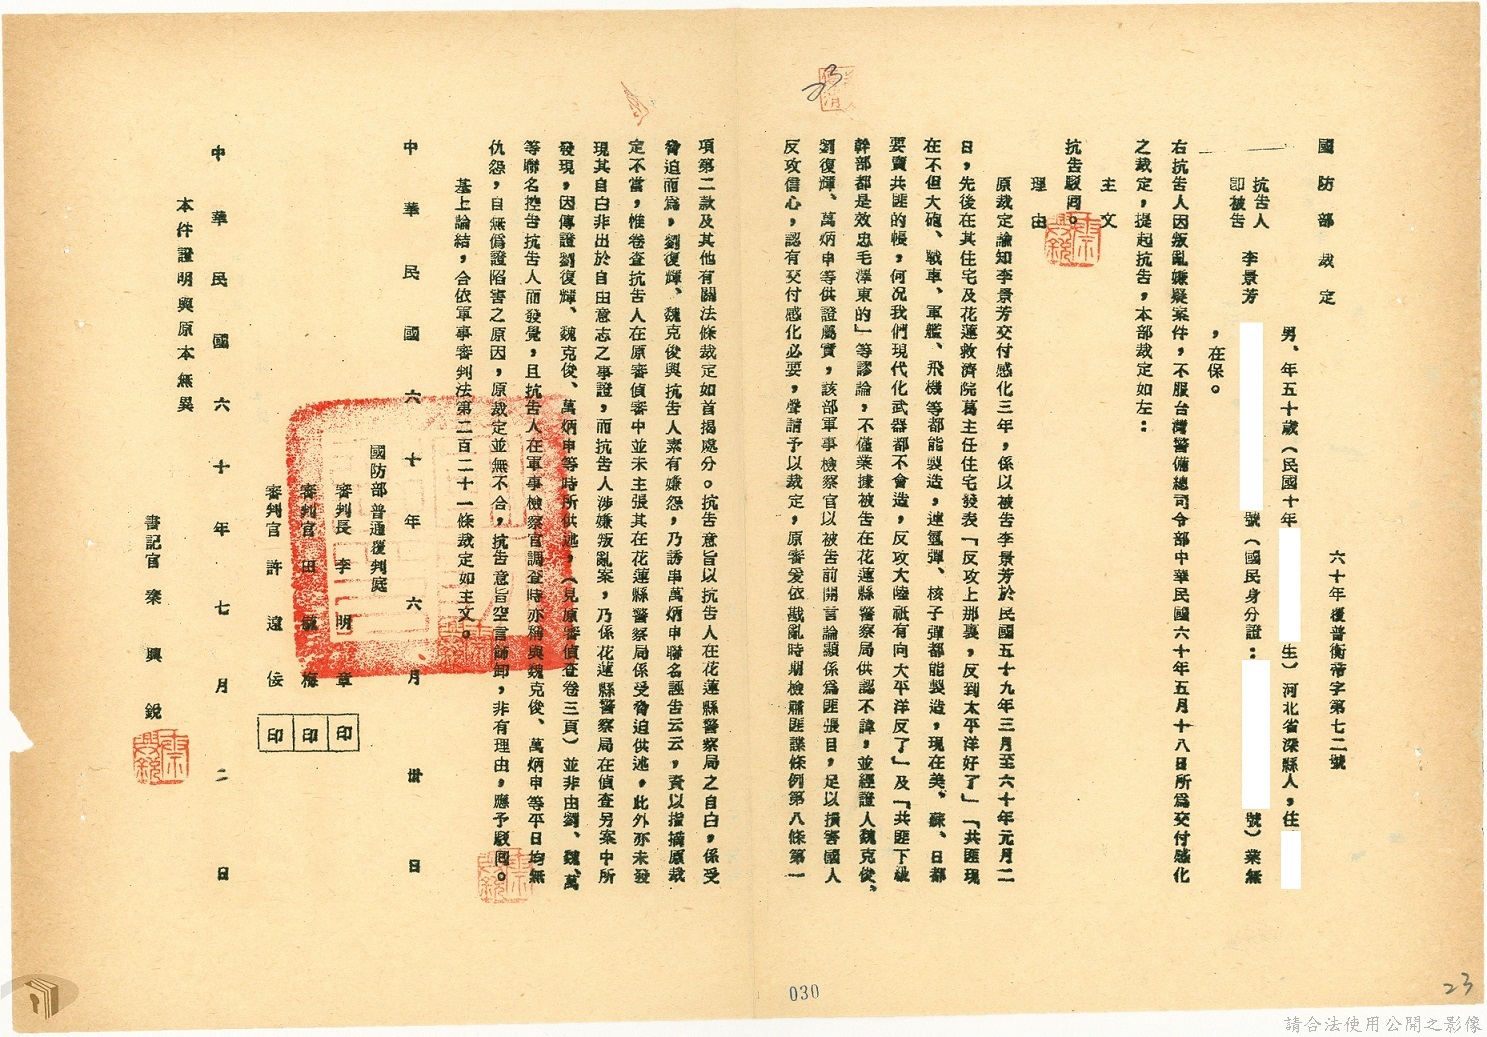 國防部裁定
六十年覆普衡常字第七二號
抗告人
即被告
李景芳
男、年五十歲(民國十年
生)河北省深縣人,住
號(國民身分證:
號)業無
,在保。
右抗告人因叛亂嫌疑案件,不服台灣警備總司令部中華民國六十年五月十八日所為交付感化
之裁定,提起抗告,本部裁定如左:
主文
抗告駁回。
理由
原裁定諭知李景芳交付感化三年,係以被告李景芳於民國五十九年三月至六十年元月二
日,先後在其住宅及花蓮救濟院葛主任住宅發表「反攻上那裏,反到太平洋好了」「共匪現
在不但大砲、戰車、軍艦、飛機等都能製造,連氫彈、核子彈都能製造,現在美、蘇、日都
要賣共匪的帳,何況我們現代化武器都不會造,反攻大陸祇有向大平洋反了」及「共匪下級
幹部都是效忠毛澤東的」等謬論,不僅業據被告在花蓮縣警察局供認不諱,並經證人魏克俊、
劉復輝、萬炳申等供證屬實,該部軍事檢察官以被告前開言論顯係為匪張目,足以損害國人
反攻信心,認有交付感化必要,聲請予以裁定,原審爰依戡亂時期檢肅匪諜條例第八條第一
項第二款及其他有關法條裁定如首揭處分。抗告意旨以抗告人在花蓮縣警察局之自白,係受
脅迫而為,劉復輝、魏克俊與抗告人素有嫌怨,乃誘串萬炳申聯名誣告云云,資以指摘原裁
定不當,惟卷查抗告人在原審偵審中並未主張其在花蓮縣警察局係受脅迫供述,此外亦未發
現其自白非出於自由意志之事證,而抗告人涉嫌叛亂案,乃係花蓮縣警察局在偵查另案中所
發現,因傳證劉復輝、魏克俊、萬炳申等時所供述,(見原審偵查卷三頁)並非由劉、魏、萬
等聯名控告抗告人而發覺,且抗告人在軍事檢察官調查時亦稱與魏克俊、萬炳申等平日均無
仇怨,自無偽證陷害之原因,原裁定並無不合,抗告意旨空言飾卸,非有理由,應予駁回。
基上論結,合依軍事審判法第二百二十一條裁定如主文。
中華民國六十年六月卅日
國防部普通覆判庭
審判長李明章
審判官田 梅
審判官許遠佞
印
印
印
中華民國六十年七月二日
本件證明與原本無異
書記官 興銳
030
23
23
請合法使用公開之影像